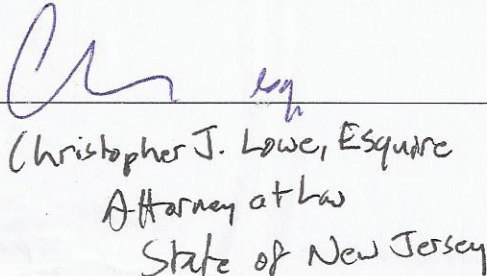 esq
Christopher J. Lowe, Esquire
Attorney at Law
State of New Jersey